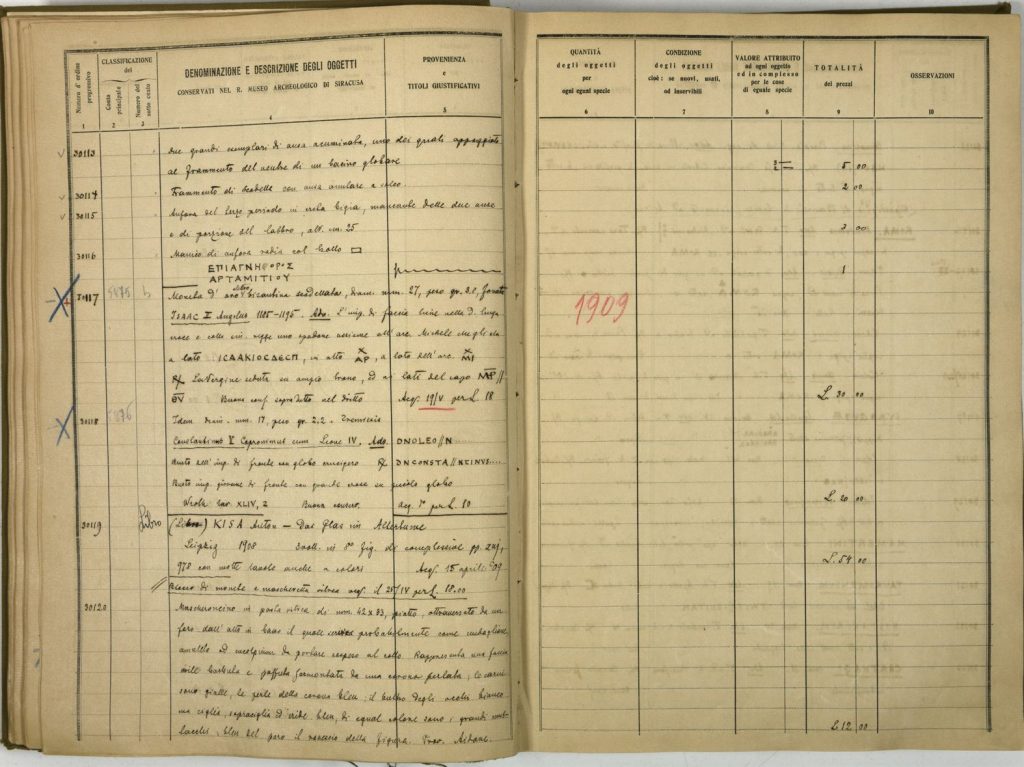 Numero d'ordine progressivo
CLASSIFICAZIONE del
Conto principale
Numero del sotto conto
DENOMINAZIONE E DESCRIZIONE DEGLI OGGETTI
CONSERVATI NEL R. MUSEO ARCHEOLOGICO DI SIRACUSA
PROVENIENZA
e
TITOLI GIUSTIFICATIVI
1 2 3 4 5
QUANTITÀ
degli oggetti
per
ogni egual specie
CONDIZIONE
degli oggetti
cioè: se nuovi, usati,
od inservibili
VALORE ATTRIBUITO
ad ogni oggetto
ed in complesso
per le cose
di eguale specie
TOTALITÀ
dei prezzi
OSSERVAZIONI
6 7 8 9 10
30113 Due grandi esemplari di ansa acuminata, uno dei quali appoggiato
al frammento del ventre di un bacino globare 5 00
30114 Frammento di scodella con ansa anulare e 2 00
30115 Anfora del terzo periodo in creta bigia, mancante delle due anse
e di porzione del labbro, alt. cm. 25 3 00
30116 Manico di anfora rodia col bollo
ΕΠΙΑΓΝΗΘΟΡΟΣ
ΑΡΤΑΜΙΤΙΟΥ 1
1909
30117 5475 L Moneta d' oro bizantina scodellata, diam. mm. 27, peso gr. 3.8,
ISAAC II Angelus 1185-1195. Ads. L'imp. di faccia tiene nella D. lunga
croce e colla sin. regge uno spadone assieme all'arc. Michele
a lato ICAAKIOCΔECΠ, in alto X AP, a lato dell'arc. X MI
La Vergine seduta su ampio trono, ed ai lati del capo MP //
ΘV Buona conf. sopratutto nel diritto Acq. 19/V per L. 18 L. 30 00
30118 5476 Idem diam. mm. 17, peso gr. 2.2. Tremissis
Constantinus V Copronimus cum Leone IV. Ads. DNOLEO//N
Busto dell'imp. di fronte con globo crucigero DNCONSTA//NTINVS....
Busto imp. giovane di fronte con grande croce su piccolo globo
Wroth tav. XLIV, 2 Buona conserv. acq. 1° per L. 80 L. 20 00
30119 Libro (Libro) KISA Anton - Das Glas in Altertume
Leipzig 1908 3 voll. in 8° fig. di complessive pp.
978 con molte tavole anche a colori Acq. 15 aprile 909 L. 54 00
Blocco di monete e mascheretta vitrea acq. il 25/IV per L. 18.00
30120 Mascheroncino in pasta vitrea di mm. 42 x 33, piatto, attraversato da un
foro dall'alto in basso il quale serviva probabilmente come medaglione
amuleto da portare sospeso al collo. Rappresenta una faccia
barbuta e paffuta sormontata da una corona perlata; le carni
sono gialle, le perle della corona bleu; il bulbo degli occhi bianco
ma ciglia, sopraciglia ed iride bleu, di egual colore sono i grandi
bleu del pari il rovescio della figura. Prov. Aidone. L 12 00